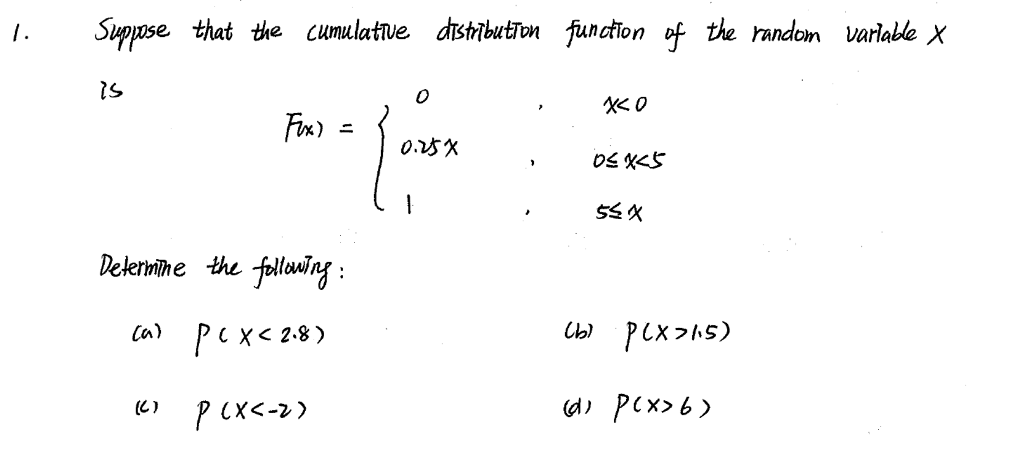 1. Suppose that the cumulative distribution function of the random variable X
is
F(x) = { 0 , x<0
0.25x , 0≤x<5
1 , 5≤x
Determine the following:
(a) P(X<2.8) (b) P(X>1.5)
(c) P(X<-2) (d) P(X>6)